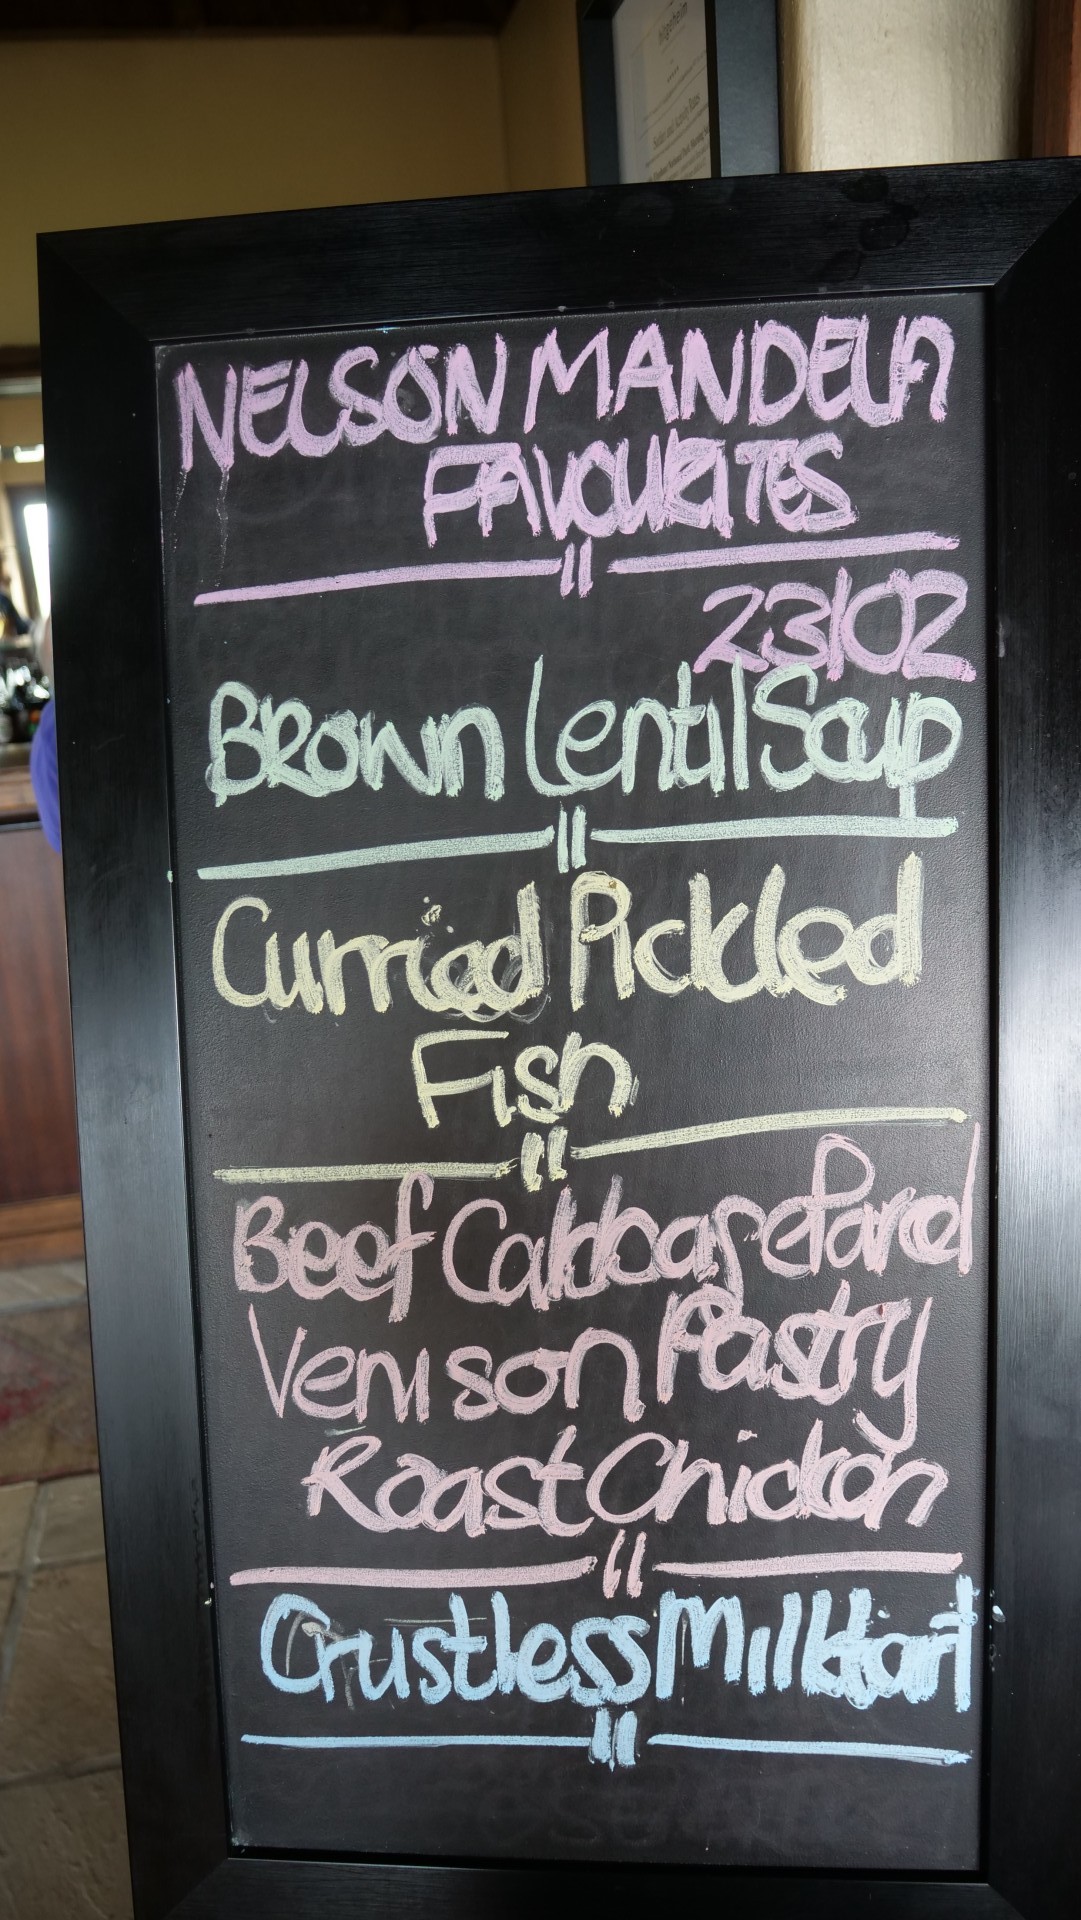 NELSON MANDELA
FAVOURITES
23/02
Brown Lentil Soup
Curried Pickled
Fish
Beef Cabbage Parcel
Venison Pastry
Roast Chicken
Crustless Milktart